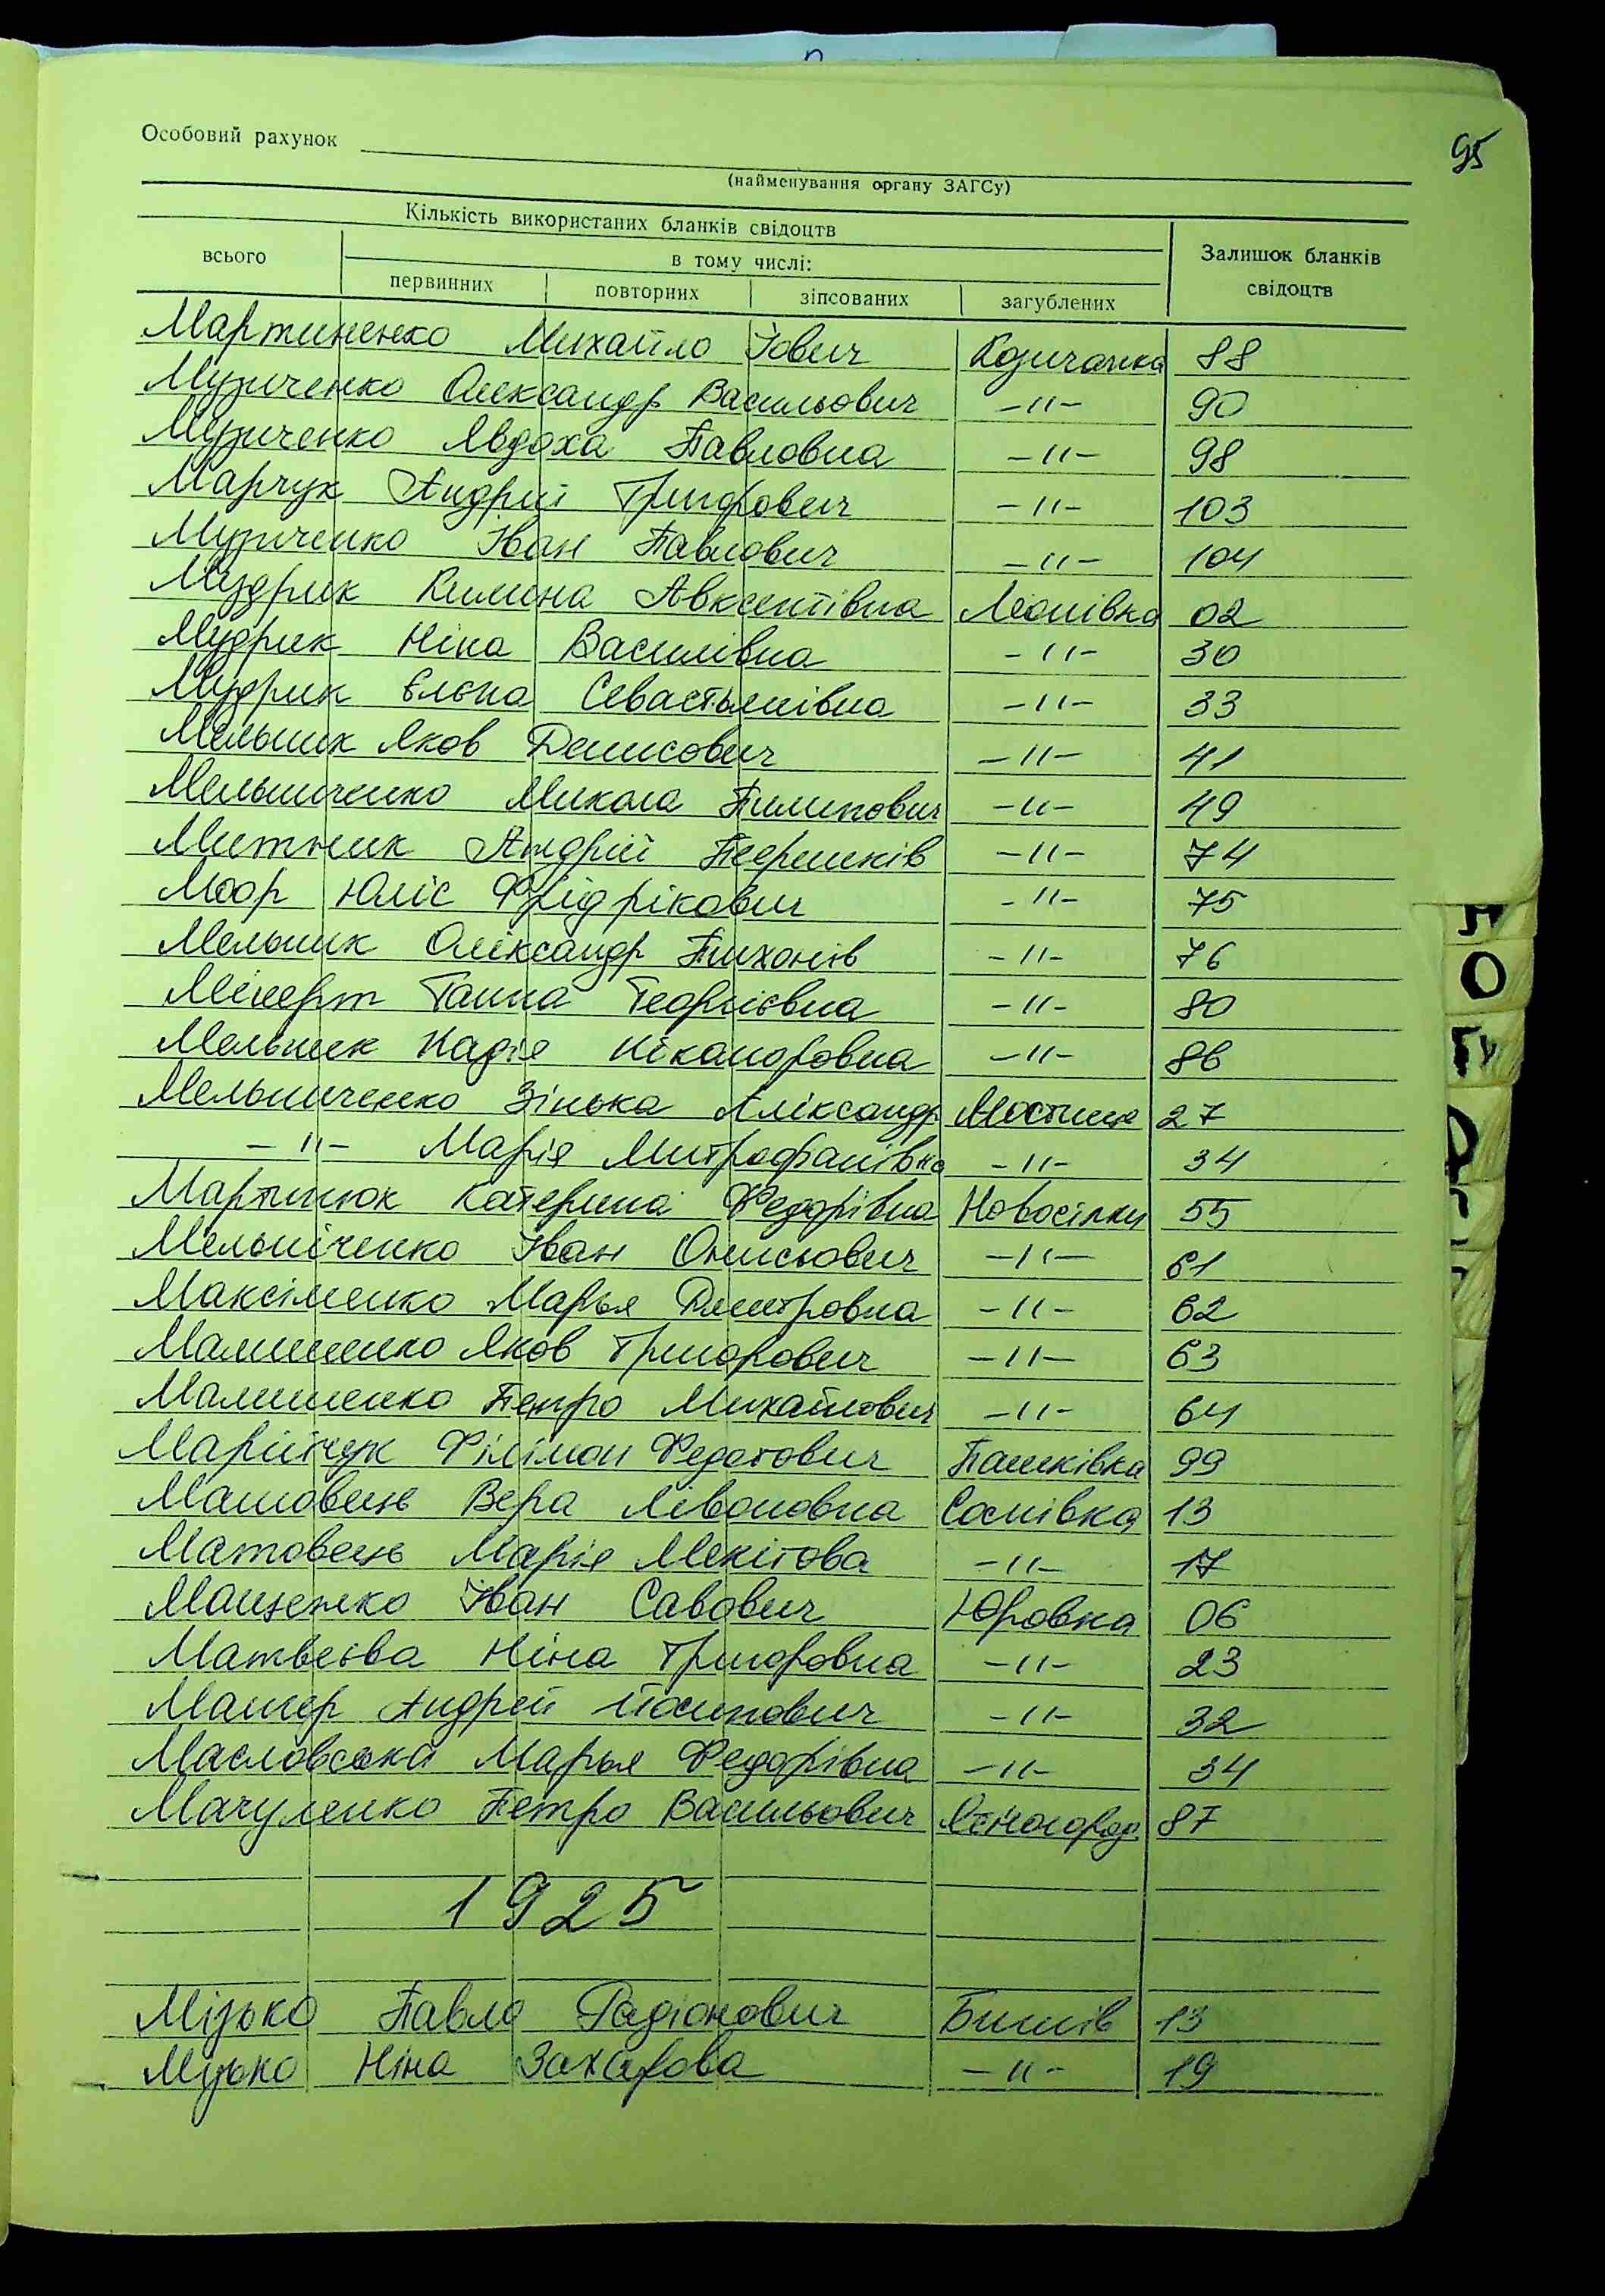 95
Особовий рахунок
(найменування органу ЗАГСу)
Кількість використаних бланків свідоцтв
Залишок бланків свідоцтв
всього
в тому числі:
первинних повторних зіпсованих загублених
Мартиненко Михайло Іович Козичанка 88
Музиченко Олександр Васильович -"- 90
Музиченко Явдоха Павловна -"- 98
Марчук Андрій Григорович -"- 103
Музиченко Іван Павлович -"- 104
Мудрик Килина Авксентівна Леонівка 02
Мудрик Ніна Василівна -"- 30
Мудрик Єлєна Севастьянівна -"- 33
Мельник Яков Денисович -"- 41
Мельниченко Микола Пилипович -"- 49
Митник Андрій -"- 74
Моор Юліс Фрідрікович -"- 75
Мельник Олександр Тихонів -"- 76
Ганна Георгієвна -"- 80
Мельник НадіяНіканоровна -"- 86
Мельниченко Зінька Аліксандр Мостище 27
-"- Марія Митрофанівна -"- 34
Мартинюк Катерина Федорівна Новосілки 55
Мельніченко Іван Онисьович -"- 61
Максіменко Марья Дмитровна -"- 62
Малишенко Яков Григорович -"- 63
Малишенко Петро Михайлович -"- 64
Марійчук Філімон Федотович Пашківка 99
Матовець Вера Лівоновна Соснівка 13
Матовець Марія Мекітова -"- 17
Мащенко Іван Савович Юровка 06
Матвеєва Ніна Григоровна -"- 23
Андрей Йосипович -"- 32
Масловська Марья Федорівна -"- 34
Мачуленко Петро Васильович Ясногород. 87
1925
Мізько Павло Радіонович Бишів 13
Мізько Ніна Захарова -"- 19